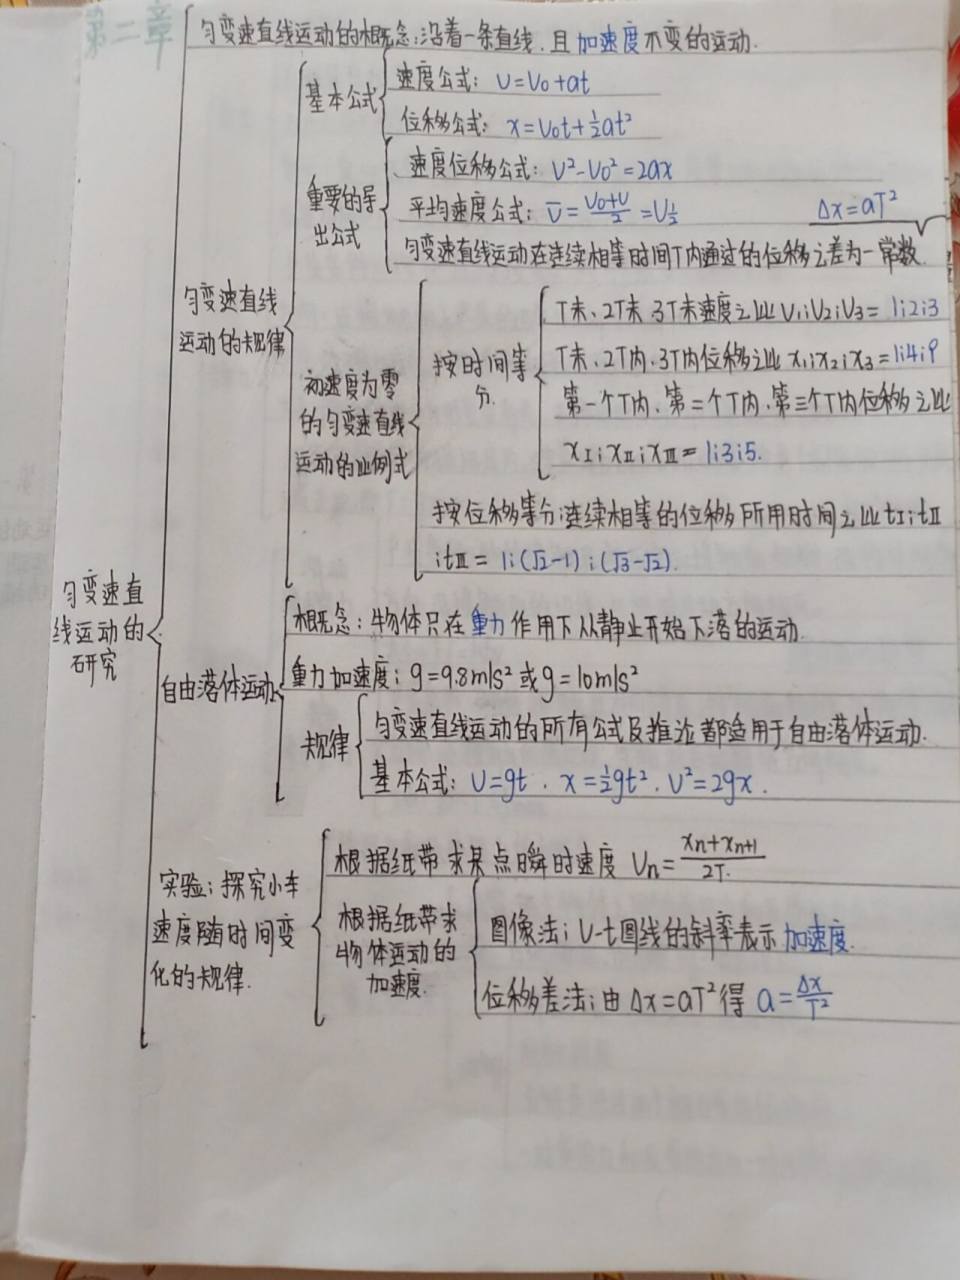 第二章
匀变速直线运动的概念:沿着一条直线.且加速度不变的运动.
基本公式
速度公式: v=v₀+at
位移公式: x=v₀t+½at²
重要的导
出公式
速度位移公式: v²-v₀²=2ax
平均速度公式: v̅=(v₀+v)/2=v½
Δx=aT²
匀变速直线运动在连续相等时间T内通过的位移之差为一常数.
匀变速直线
运动的规律
初速度为零
的匀变速直线
运动的比例式
按时间等
分.
T末、2T末、3T末速度之比v₁:v₂:v₃=1:2:3
T末、2T内、3T内位移之比x₁:x₂:x₃=1:4:9
第一个T内、第二个T内、第三个T内位移之比
xⅠ:xⅡ:xⅢ=1:3:5.
按位移等分:连续相等的位移所用时间之比tⅠ:tⅡ
:tⅢ=1:(√2-1):(√3-√2).
匀变速直
线运动的
研究
自由落体运动
概念:物体只在重力作用下从静止开始下落的运动.
重力加速度:g=9.8m/s²或g=10m/s²
规律
匀变速直线运动的所有公式及推论都适用于自由落体运动.
基本公式: v=gt. x=½gt². v²=2gx.
实验:探究小车
速度随时间变
化的规律.
根据纸带求某点瞬时速度 vn=(xn+xn+1)/2T.
根据纸带求
物体运动的
加速度.
图像法:v-t图线的斜率表示加速度.
位移差法:由Δx=aT²得 a=Δx/T²